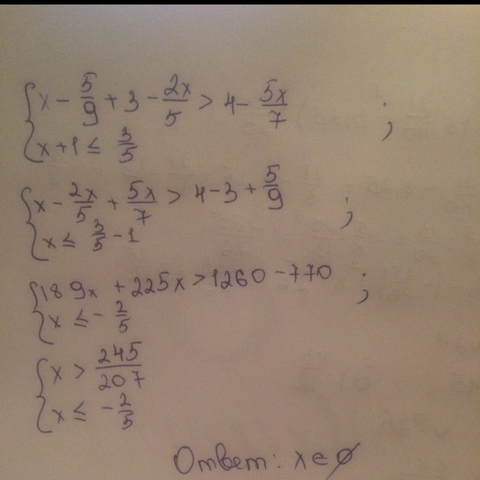 x - 5/9 + 3 - 2x/5 > 4 - 5x/7 ;
x + 1 ≤ 3/5
x - 2x/5 + 5x/7 > 4 - 3 + 5/9 ;
x ≤ 3/5 - 1
189x + 225x > 1260 - 770 ;
x ≤ - 2/5
x > 245/207
x ≤ - 2/5
Ответ: x ∈ ∅